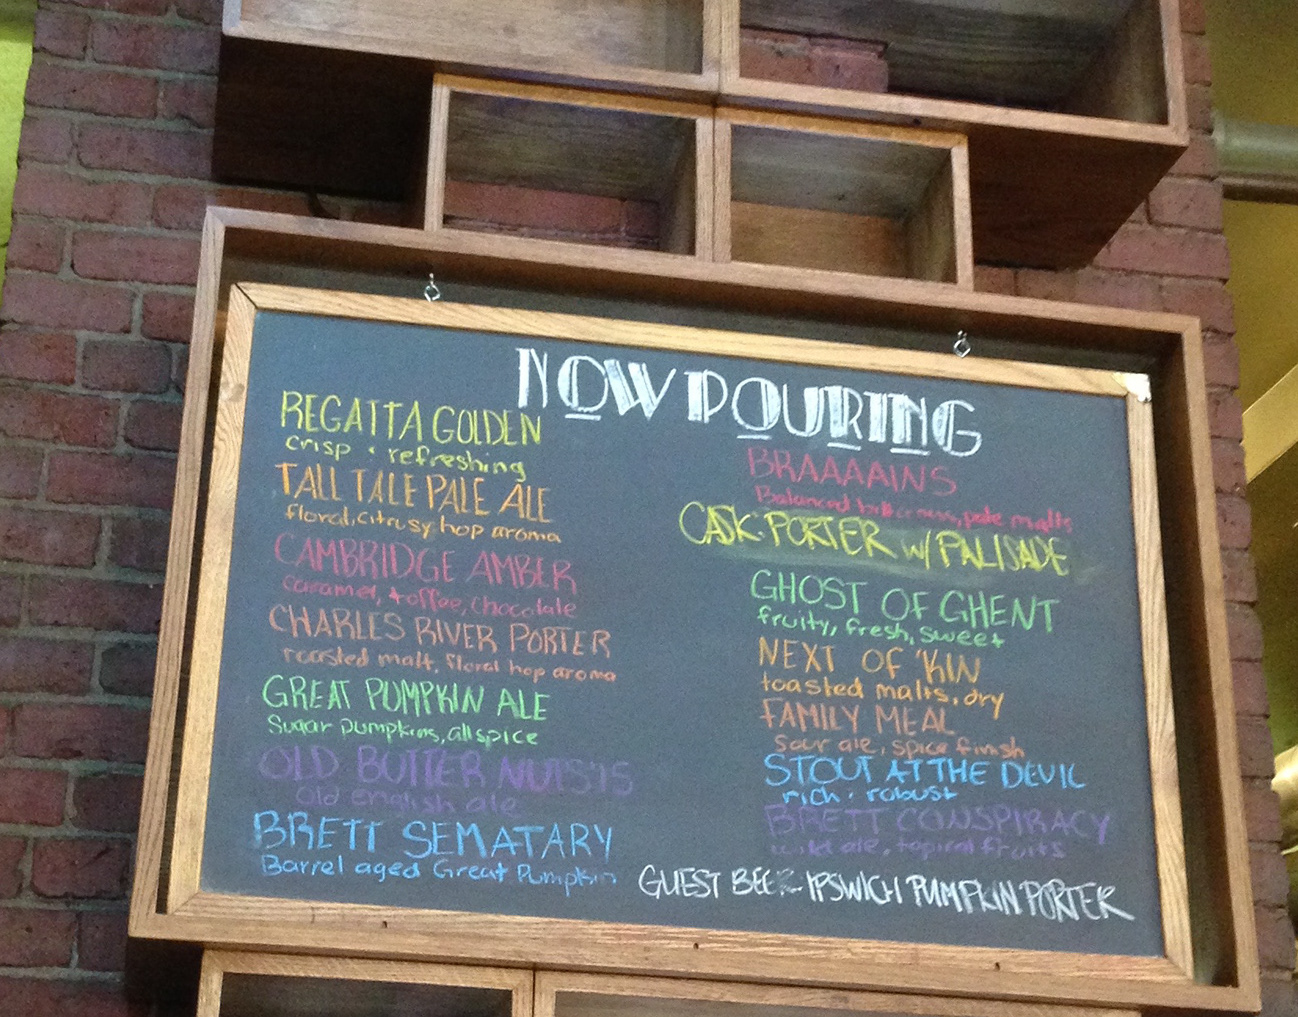 NOW POURING
REGATTA GOLDEN
crisp · refreshing
TALL TALE PALE ALE
floral, citrusy hop aroma
CAMBRIDGE AMBER
caramel, toffee, chocolate
CHARLES RIVER PORTER
roasted malt, floral hop aroma
GREAT PUMPKIN ALE
Sugar pumpkins, allspice
OLD BUTTER NUTS '15
Old english ale
BRETT SEMATARY
Barrel aged Great Pumpkin
BRAAAAINS
Balanced bitterness, pale malts
CASK: PORTER w/ PALISADE
GHOST OF GHENT
fruity, fresh, sweet
NEXT OF 'KIN
toasted malts, dry
FAMILY MEAL
sour ale, spice finish
STOUT AT THE DEVIL
rich · robust
BRETT CONSPIRACY
wild ale, topical fruits
GUEST BEER - IPSWICH PUMPKIN PORTER